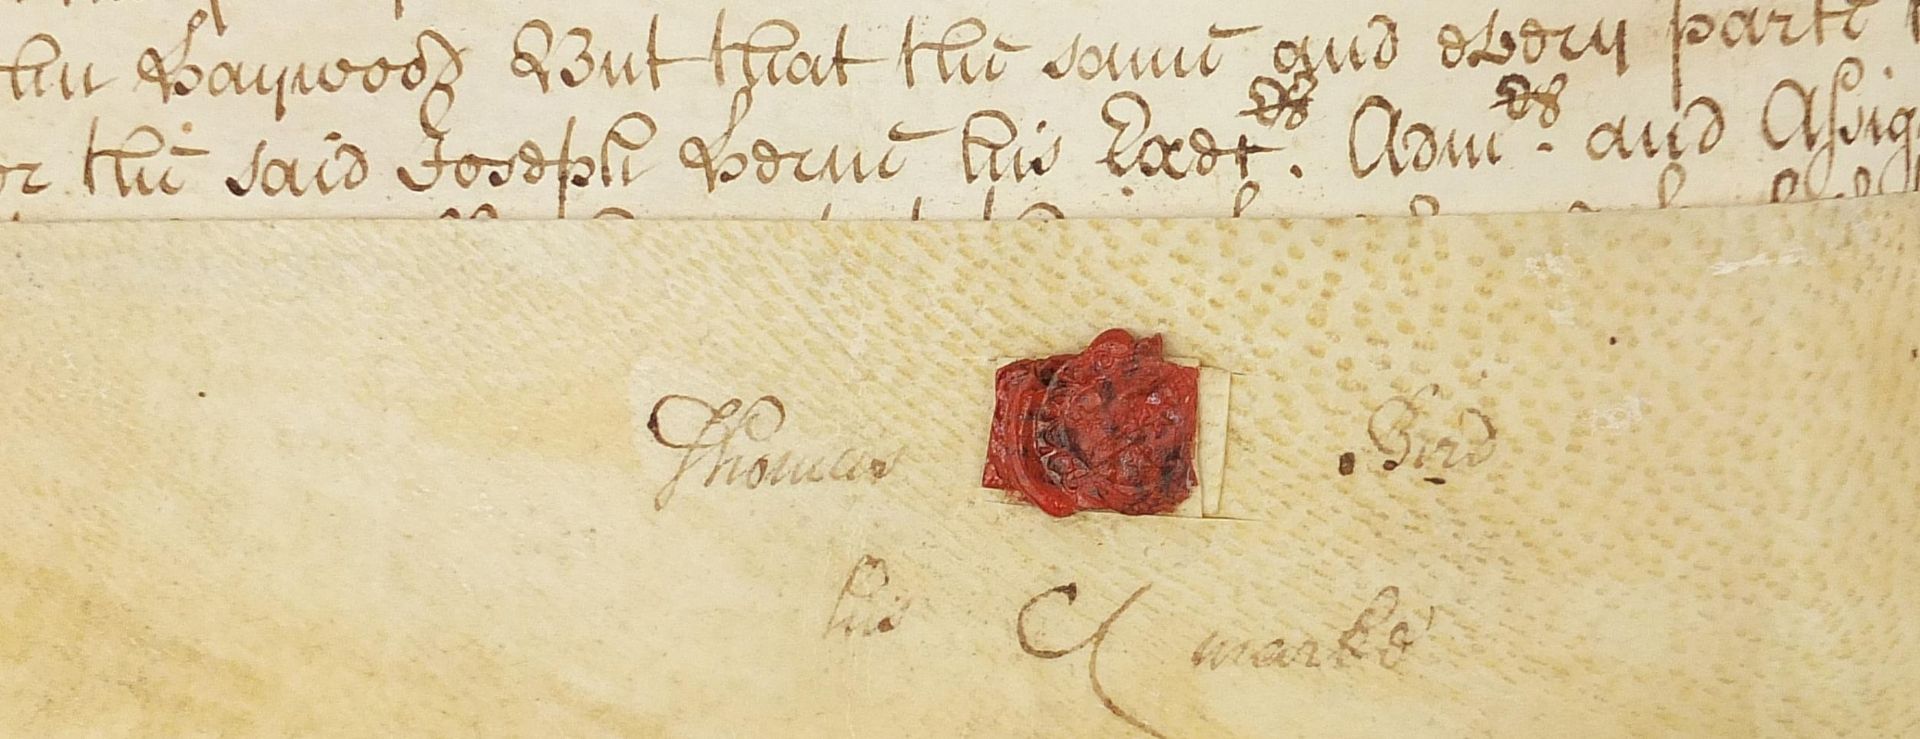 Haywood But that the same and every parte
the said Joseph Herne his Exec.rs Adm.rs and Assig
Thomas Bird
his marke